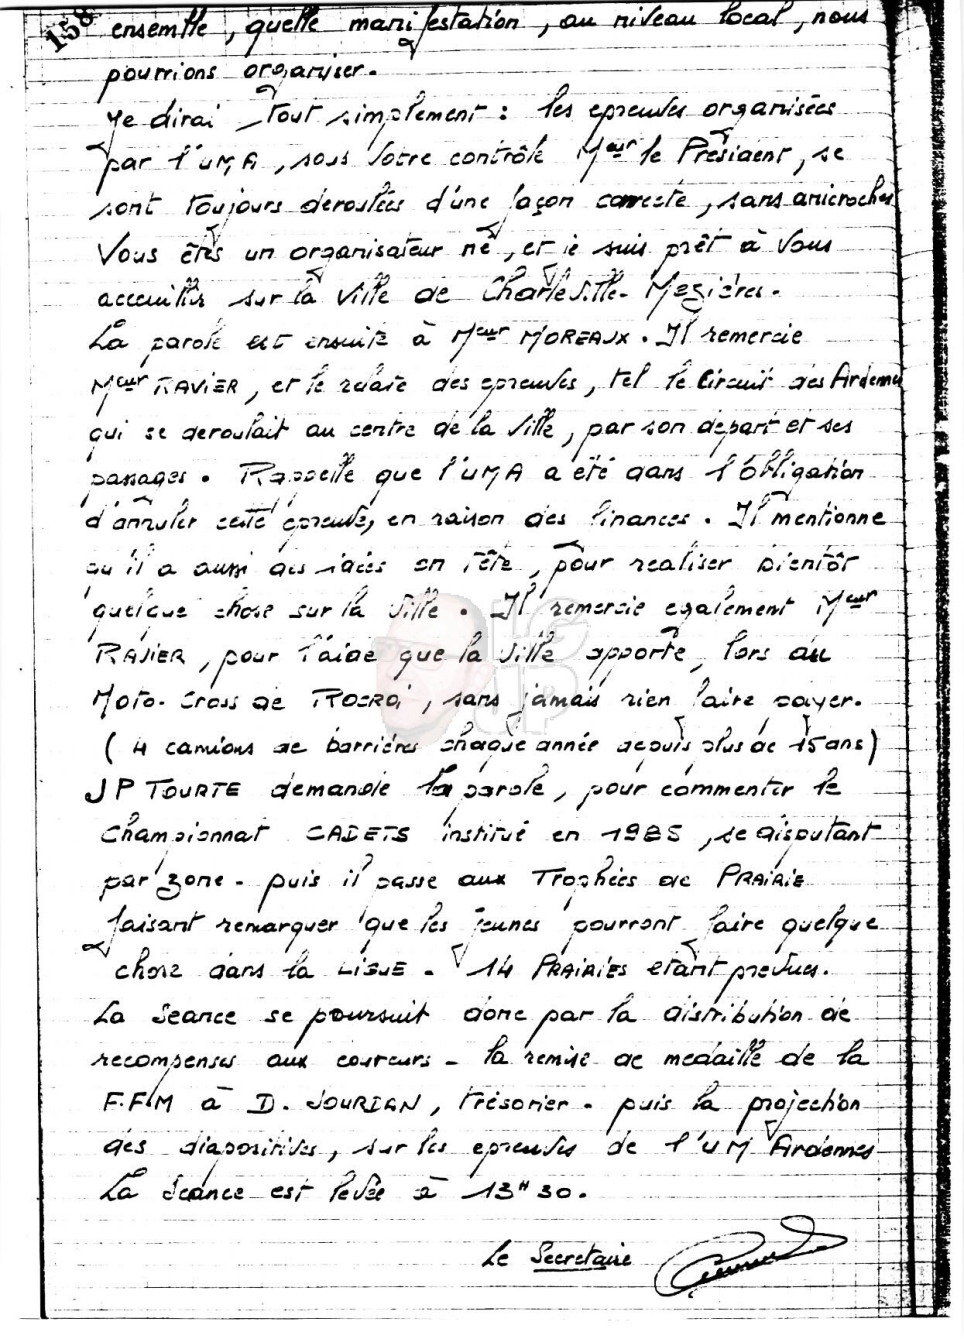 158
ensemble, quelle manifestation, au niveau local, nous
pourrions organiser.
Je dirai tout simplement : les epreuves organisées
par l'UMA, sous votre contrôle Meur le Président, se
sont toujours deroulées d'une façon correcte, sans anicroches
Vous êtes un organisateur né, et je suis prêt à vous
acceuillir sur la ville de Charleville-Mezières.
La parole est ensuite à Meur MOREAUX. Il remercie
Meur RAVIER, et le relate des epreuves, tel le Circuit des Ardennes
qui se deroulait au centre de la ville, par son départ et ses
passages. Rappelle que l'UMA a été dans l'obligation
d'annuler cette épreuve, en raison des finances. Il mentionne
qu'il a aussi des idées en tête, pour realiser bientôt
quelque chose sur la ville. Il remercie egalement Meur
RAVIER, pour l'aide que la ville apporte, lors du
Moto-Cross de ROCROI, sans jamais rien faire payer.
(4 camions de barrières chaque année depuis plus de 15 ans)
JP TOURTE demande la parole, pour commenter le
Championnat CADETS institué en 1985, se disputant
par zone - puis il passe aux Trophées de PRAIRIE
faisant remarquer que les jeunes pourront faire quelque
chose dans la LIGUE - 14 PRAIRIES etant prevues.
La Seance se poursuit donc par la distribution de
recompenses aux coureurs - la remise de medaille de la
F.F.M à D. JOURDAN, trésorier - puis la projection
des diapositives, sur les epreuves de l'UM Ardennes
La Séance est levée à 13H30.
Le Secretaire
LG
UP